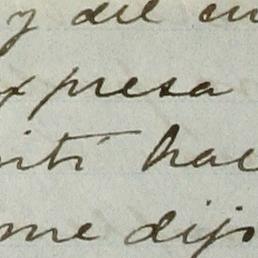 y del en
expresa
nti hac
me dijo